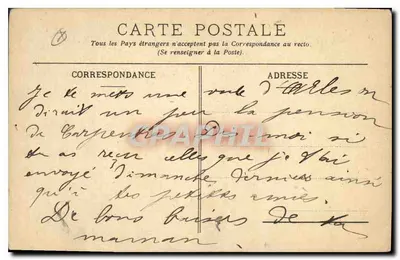 CARTE POSTALE
Tous les Pays étrangers n'acceptent pas la Correspondance au recto.
(Se renseigner à la Poste).
CORRESPONDANCE
ADRESSE
Je te mets une vue d'Arles on
dirait un peu la pension
de Carpentras Dis moi si
tu as reçu celles que je t'ai
envoyé dimanche dernier ainsi
qu'à tes petites amies.
De bons baisers de ta
maman
CPAPHIL